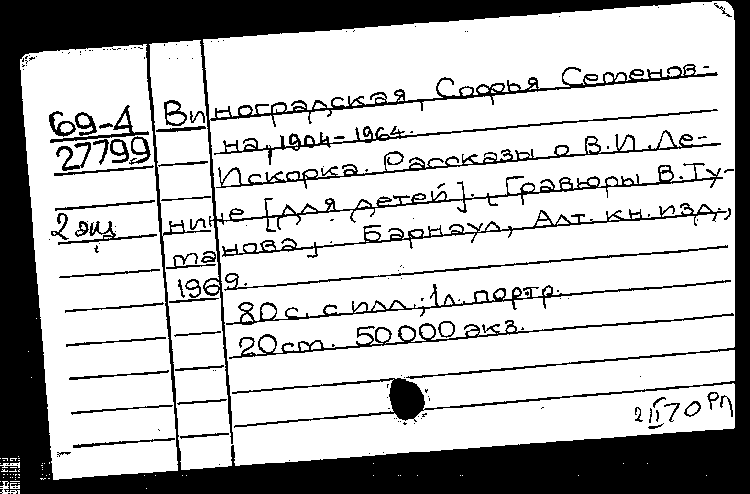 69-4
27799
2 экз
Виноградская, Софья Семенов-
на, 1904-1964.
Искорка. Рассказы о В.И. Ле-
нине [для детей]. [Гравюры В. Ту-
манова]. Барнаул, Алт. кн. изд.,
1969.
80 с. с илл.; 1 л. портр.
20 cm. 50 000 экз.
2 II 70 РП